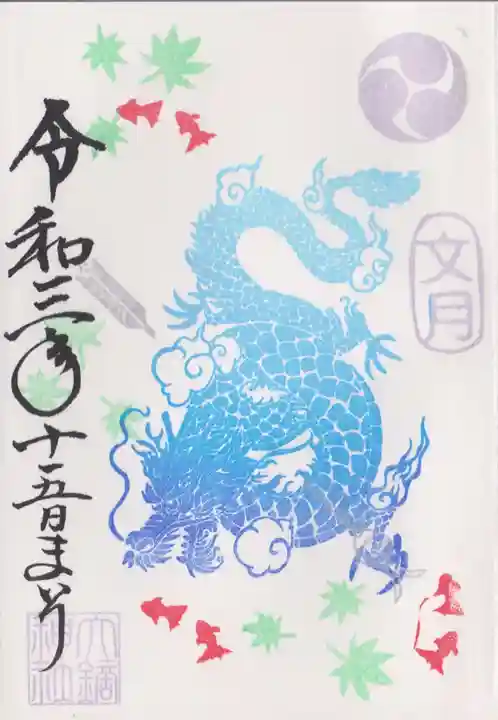 文月
令和三年十五日まいり
大鏑
神社